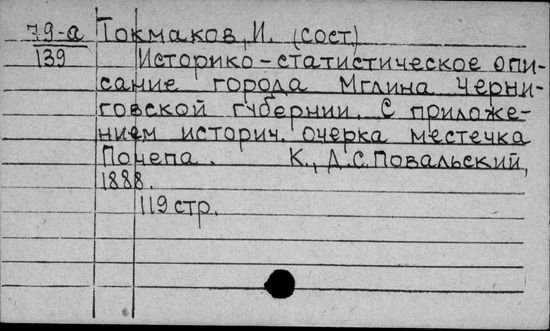 79-а Токмаков, И. (сост)
139 Историко-статистическое опи-
сание города Мглина Черни-
говской губернии. С приложе-
нием историч. очерка местечка
Почепа. К., Д.С. Повальский,
1888.
119 стр.